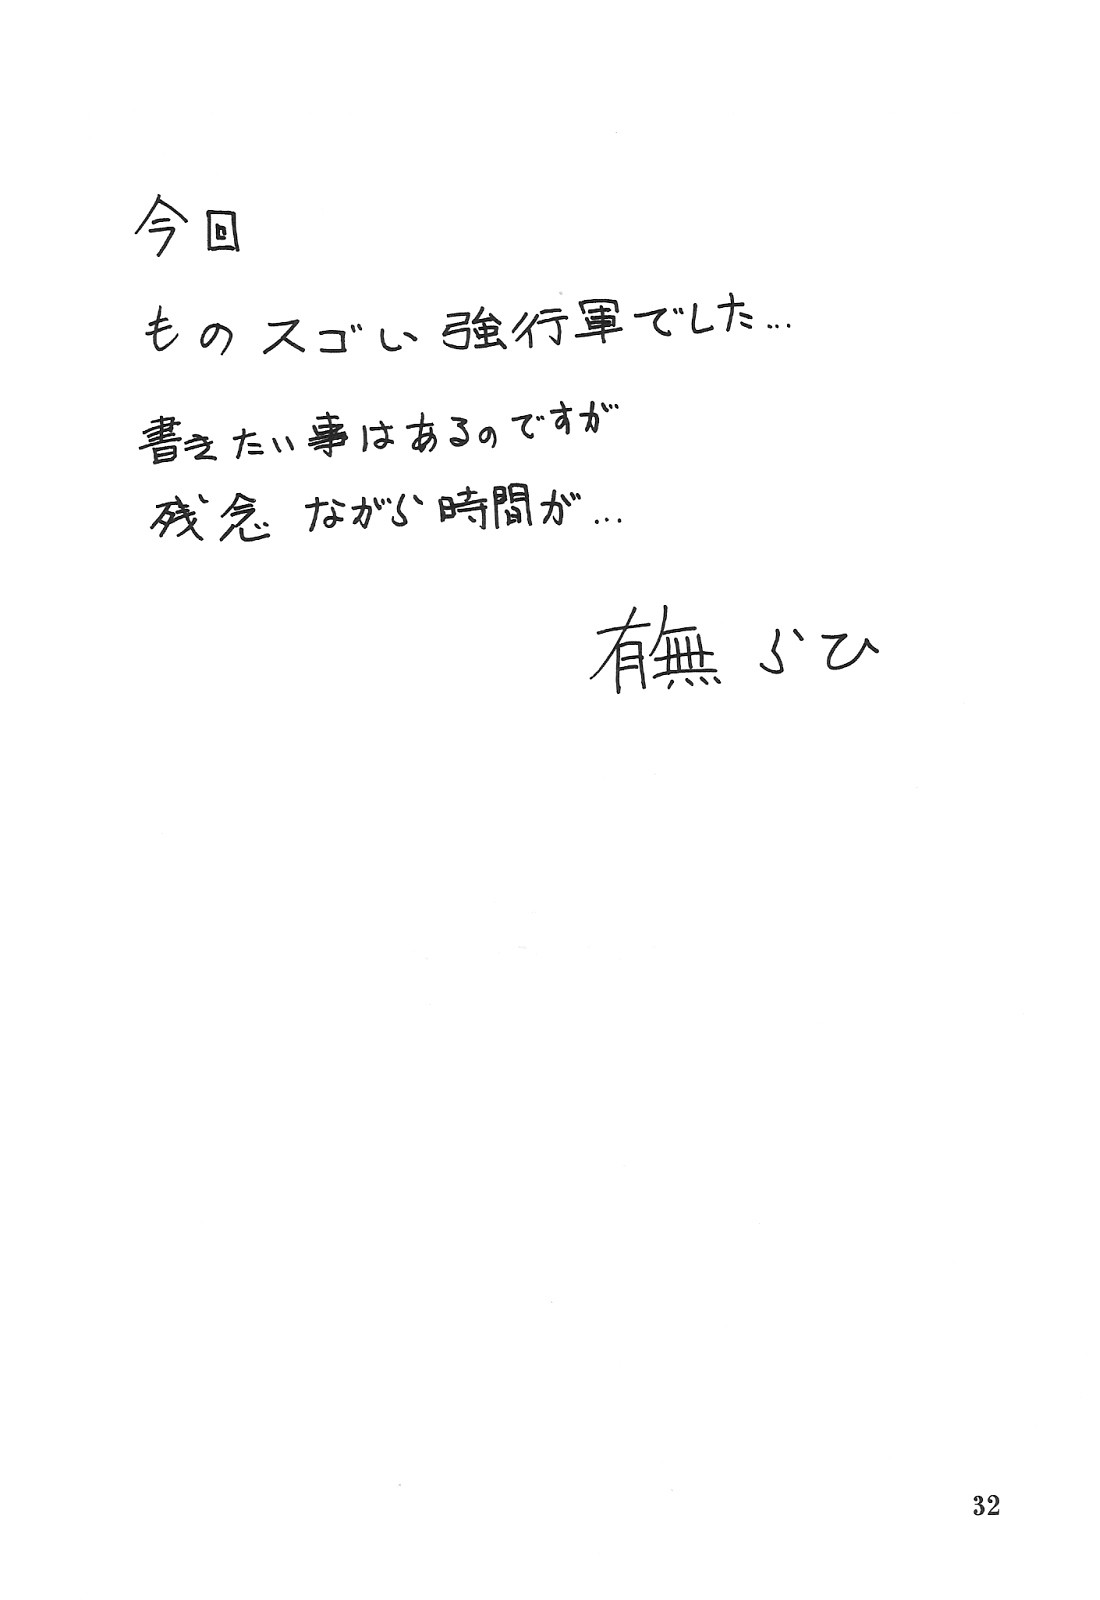 今回
ものスゴい強行軍でした...
書きたい事はあるのですが
残念ながら時間が...
有無らひ
32